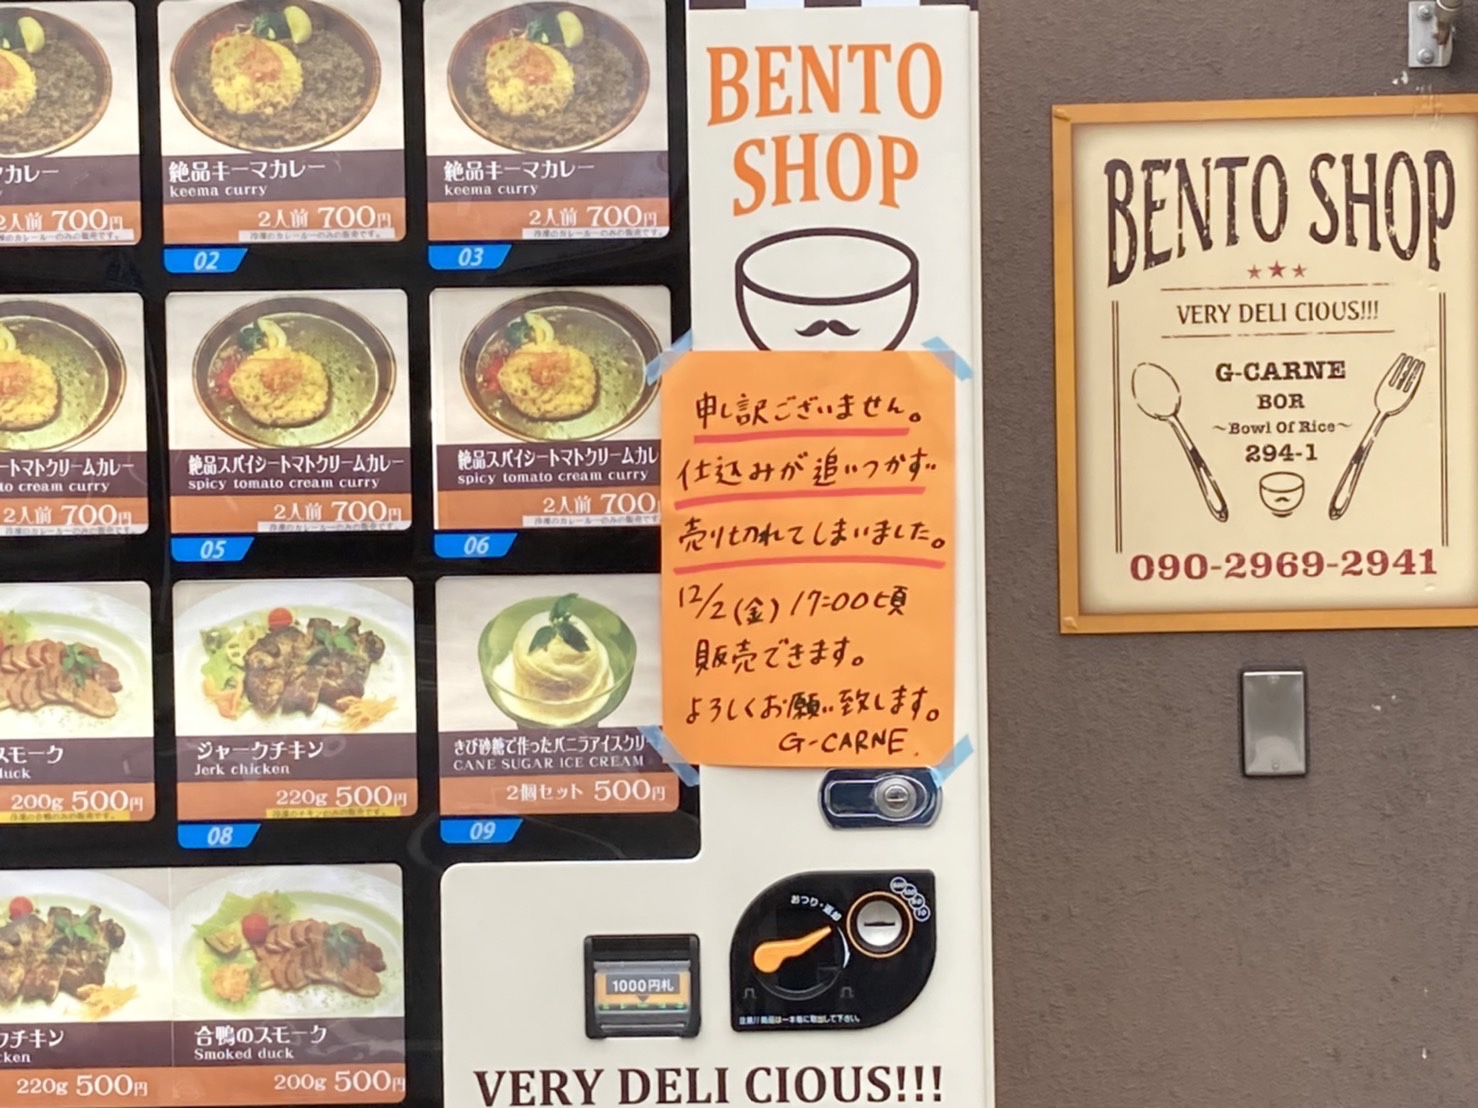 BENTO
SHOP
マカレー
2人前 700円
絶品キーマカレー
keema curry
2人前 700円
冷凍のカレールーのみの販売です。
02
絶品キーマカレー
keema curry
2人前 700円
冷凍のカレールーのみの販売です。
03
ートマトクリームカレー
to cream curry
2人前 700円
絶品スパイシートマトクリームカレー
spicy tomato cream curry
2人前 700円
冷凍のカレールーのみの販売です。
05
絶品スパイシートマトクリームカレ
spicy tomato cream curry
2人前 700
冷凍のカレールーのみの販売です
06
スモーク
duck
200g 500円
冷凍の合鴨のみの販売です。
ジャークチキン
Jerk chicken
220g 500円
冷凍のチキンのみの販売です。
08
きび砂糖で作ったバニラアイスクリ
CANE SUGAR ICE CREAM
2個セット 500円
09
クチキン
cken
220g 500円
合鴨のスモーク
Smoked duck
200g 500円
申し訳ございません。
仕込みが追いつかず
売り切れてしまいました。
12/2(金) 17:00頃
販売できます。
よろしくお願い致します。
G-CARNE.
おつり・返却
1000円札
注意!!商品は一本毎に取出して下さい。
VERY DELI CIOUS!!!
BENTO SHOP
VERY DELI CIOUS!!!
G-CARNE
BOR
~Bowl Of Rice~
294-1
090-2969-2941